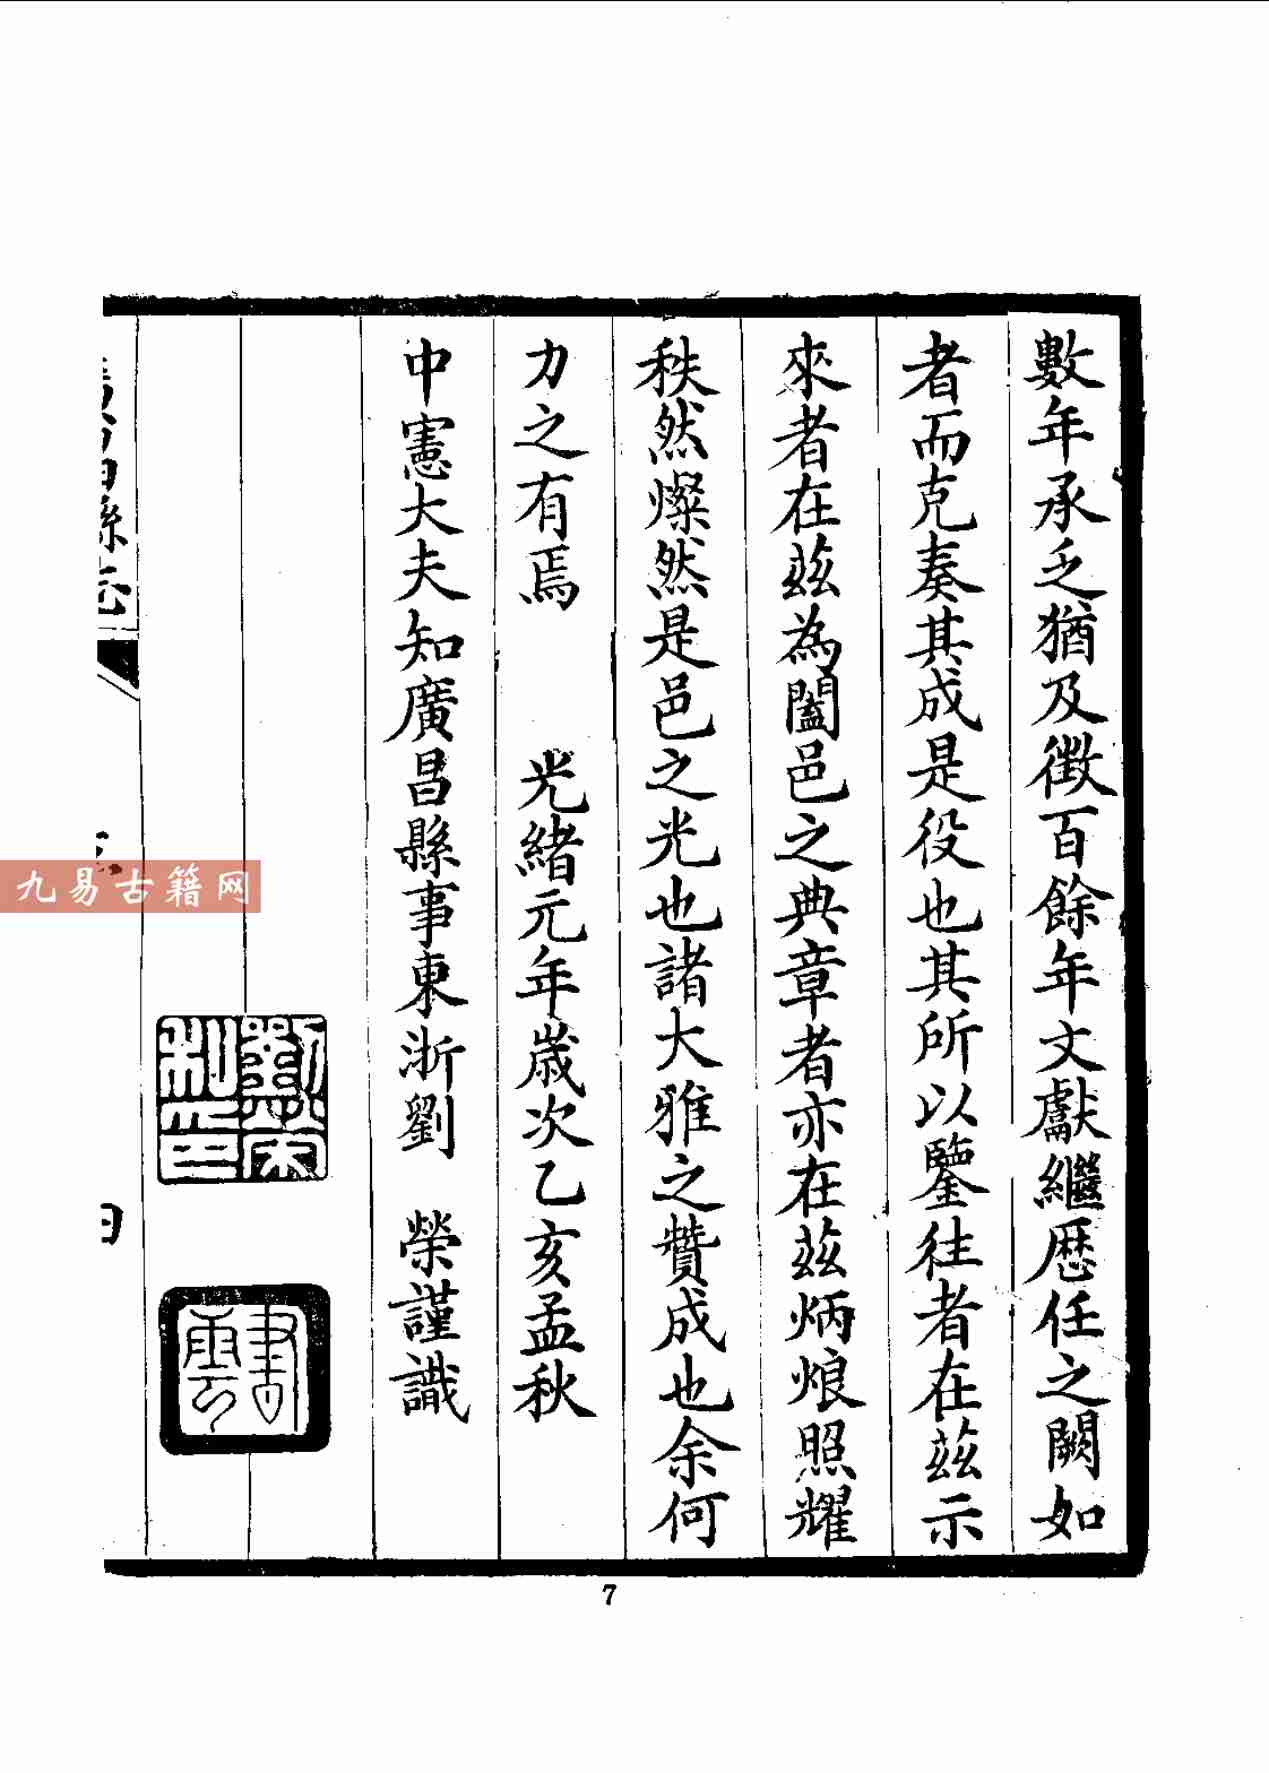 數年承乏猶及徵百餘年文獻繼歷任之闕如
者而克奏其成是役也其所以鑒往者在茲示
來者在茲為闔邑之典章者亦在茲炳烺照耀
秩然燦然是邑之光也諸大雅之贊成也余何
力之有焉 光緒元年歲次乙亥孟秋
中憲大夫知廣昌縣事東浙劉 榮謹識
劉榮私印
書雲
縣志
九易古籍网
7